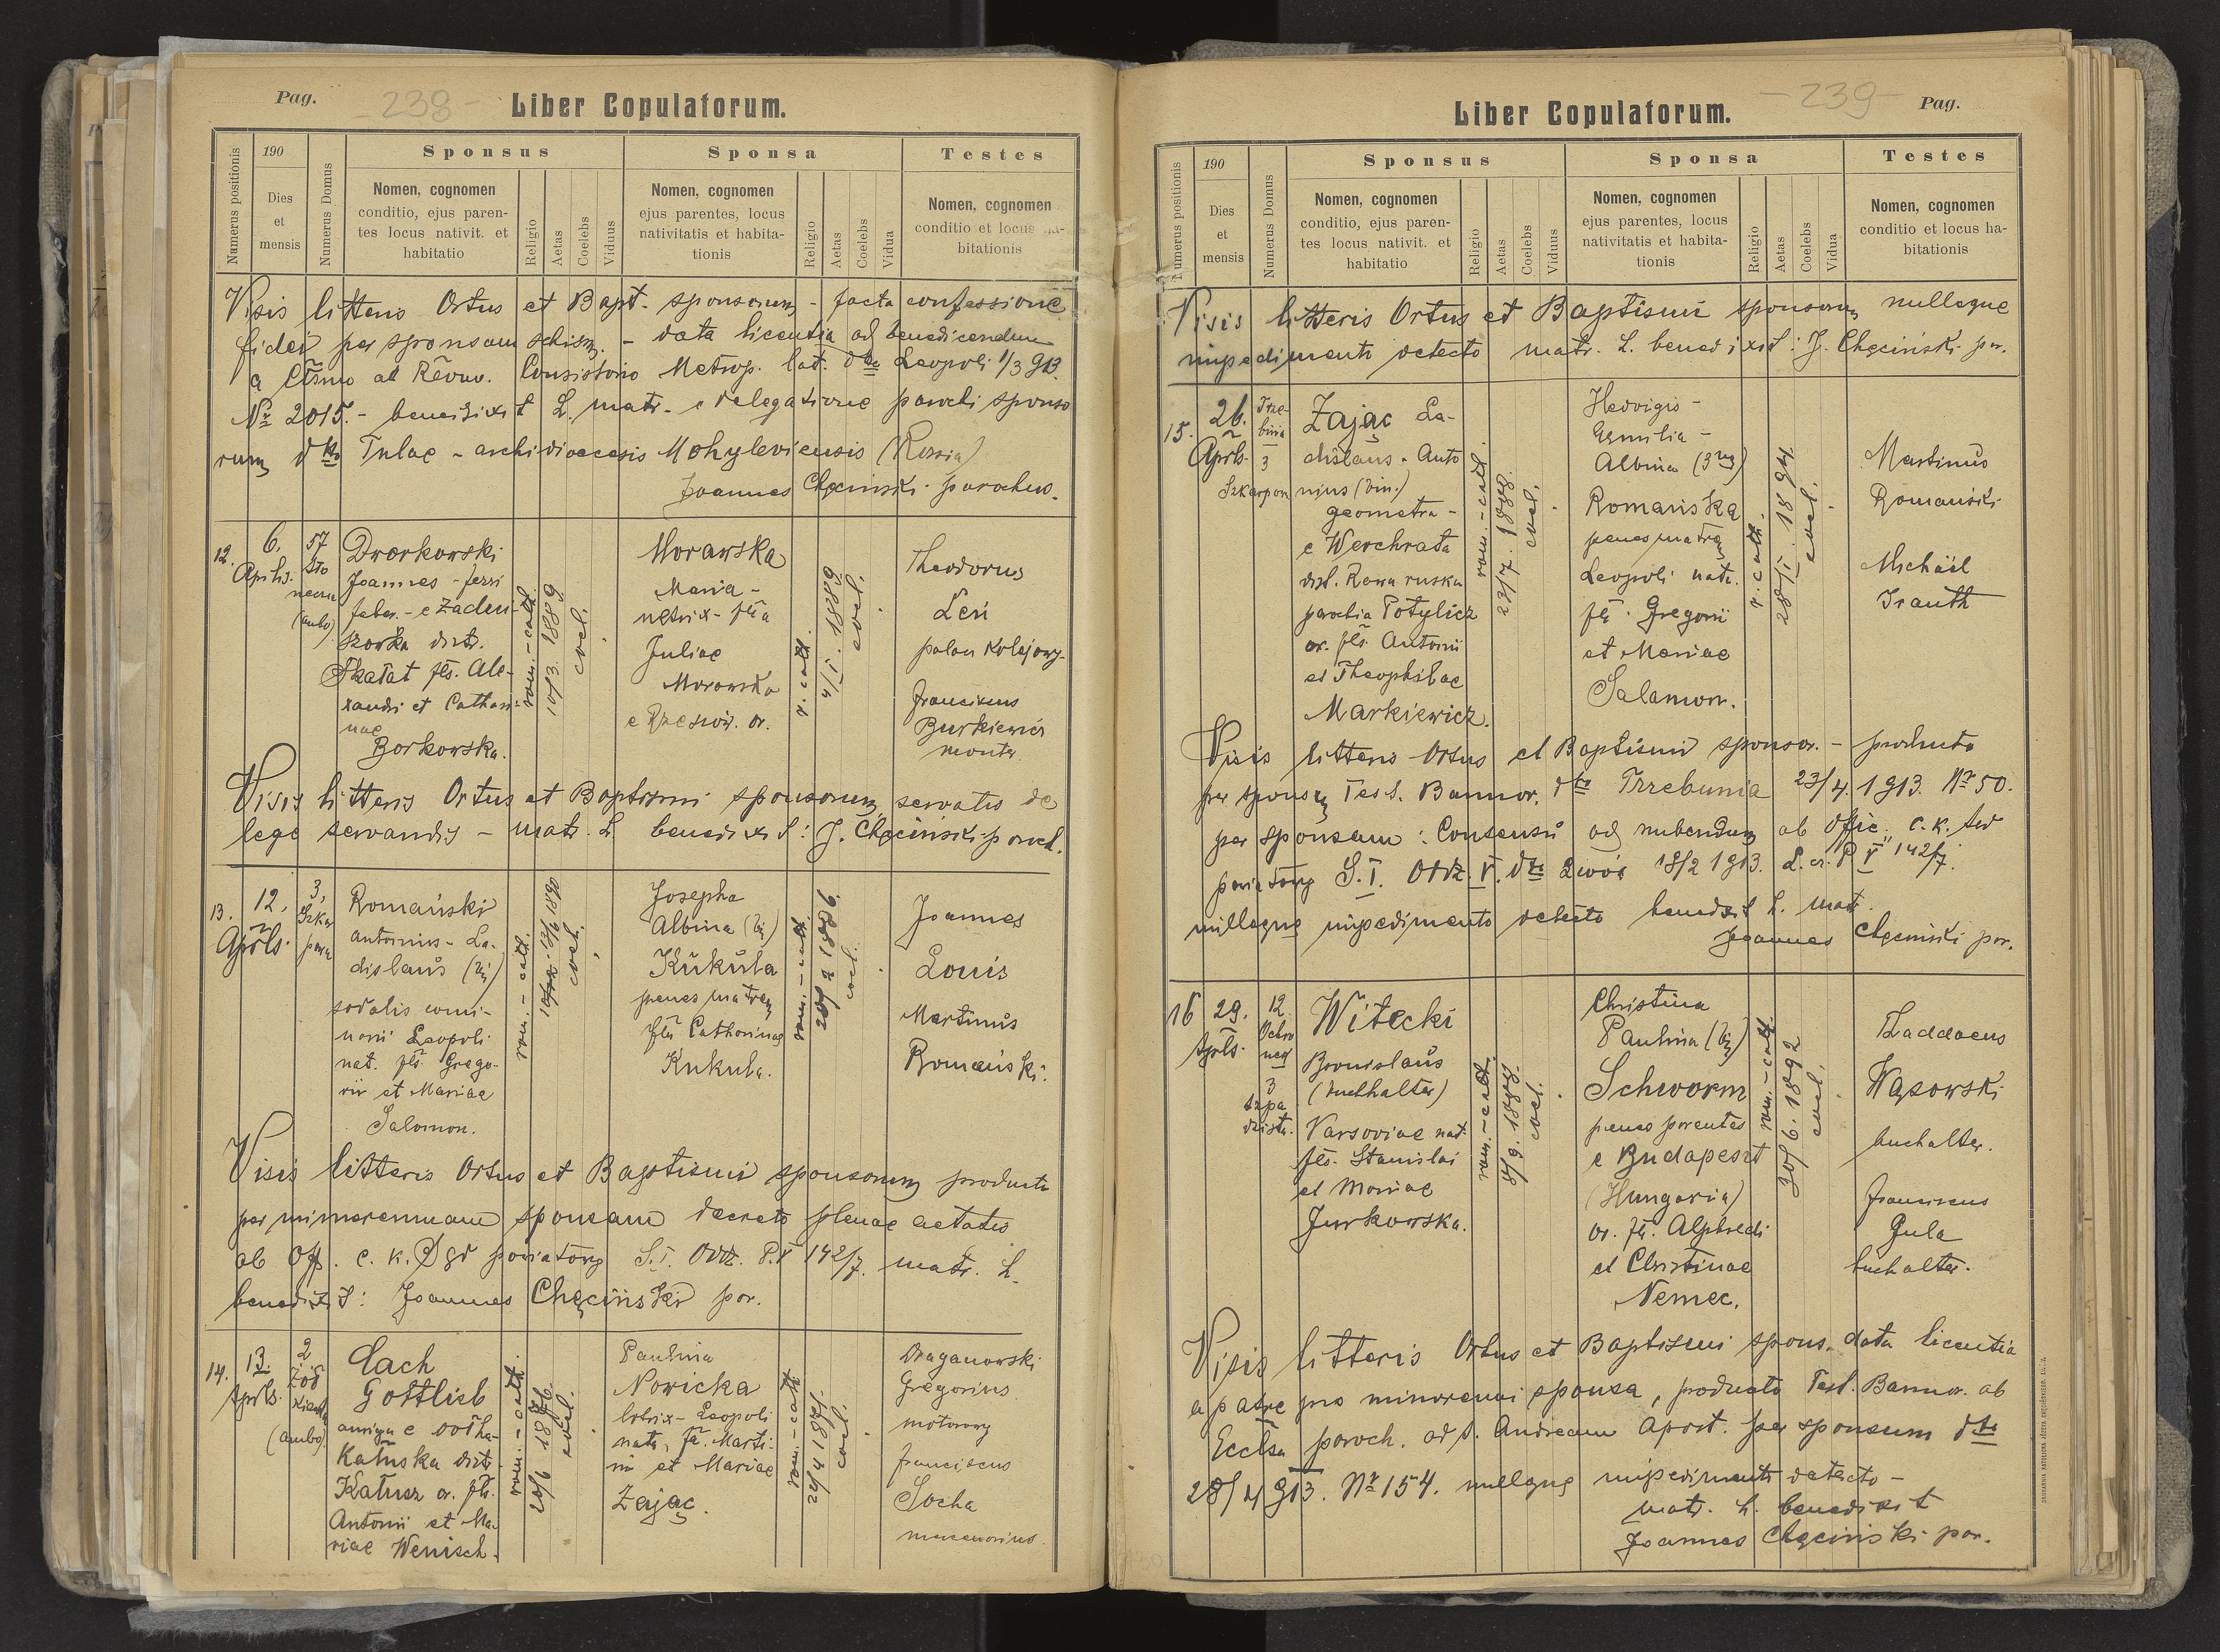 Pag.
238
Liber Copulatorum.
Numerus positionis
190
Dies
et
mensis
Numerus Domus
Sponsus
Nomen, cognomen
conditio, ejus paren-
tes locus nativit. et
habitatio
Religio
Aetas
Coelebs
Viduus
Sponsa
Nomen, cognomen
ejus parentes, locus
nativitatis et habita-
tionis
Religio
Aetas
Coelebs
Vidua
Testes
Nomen, cognomen
conditio et locus ha-
bitationis
Visis litteris Ortus et Bapt. sponsorum - facta confessione
fidei per sponsam schism. - data licentia ad benedicendum
a Consistorio Metrop. lat. dto Leopoli 1/3 913.
No 2015. - benedixit L. matr. e delegatione parochi sponso
rum dto Tulae - archidioecesis Mohyleviensis (Rossia)
Joannes Chęciński parochus.
12.
6.
Aprilis.
57
(ambo)
Dworkowski
Joannes - ferri
faber. - e Zadeu-
szowka distr.
Skałat fls. Ale-
xandri et Cathari-
nae
Borkowska.
rom. - cath.
10/3 1889
coel.
Morawska
Maria -
netrix - fla
Juliae
Morawska
e Rzeszów. or.
r. cath.
4/I. 1889
coel.
Theodorus
Leń
palacz kolejowy
Franciscus
Burkiewicz
monter
Visis litteris Ortus et Baptismi sponsorum, servatis de
lege servandis - matr. L. benedixit: J. Chęciński paroch.
13.
12.
Aprls.
3,
Romański
Antonius - La-
dislaus (bin)
sodalis comi-
narii Leopoli
nat. fls. Grego-
rii et Mariae
Salomon.
rom. - cath.
13/6 1890
coel.
Josepha
Albina (bin)
Kukuła
penes matrem
fla Catharinae
Kukuła.
rom. - cath.
20/2 1889
coel.
Joannes
Louis
Martinus
Romański.
Visis litteris Ortus et Baptismi sponsorum producto
per minorennam sponsam decreto plenae aetatis
ab Off. c. k. Sąd powiatowy S. I. Odd. P. V 142/7. matr. L.
benedixit: Joannes Chęciński par.
14.
13.
Aprls.
2
(ambo)
Cach
Gottlieb
auriga e
Kałuska distr.
Kałusz or. fls.
Antonii et Ma-
riae Wenisch.
rom. - cath.
coel.
Paulina
Nowicka
lotrix - Leopoli
nata, fa. Marti-
ni et Mariae
Zając.
rom. - cath.
coel.
Draganowski
Gregorius
motorowy
Franciscus
Socha
mercenarius.
239
Pag.
Liber Copulatorum.
Numerus positionis
190
Dies
et
mensis
Numerus Domus
Sponsus
Nomen, cognomen
conditio, ejus paren-
tes locus nativit. et
habitatio
Religio
Aetas
Coelebs
Viduus
Sponsa
Nomen, cognomen
ejus parentes, locus
nativitatis et habita-
tionis
Religio
Aetas
Coelebs
Vidua
Testes
Nomen, cognomen
conditio et locus ha-
bitationis
Visis litteris Ortus et Baptismi sponsorum nulloque
impedimento detecto matr. L. benedixit: J. Chęciński par.
15.
26.
Aprls.
3
Zając La-
dislaus - Anto
nius (bin.)
geometra -
e Werchrata
dist. Rawa ruska
parochia Potylicz
or. fls. Antonii
et Theophilae
Markiewicz.
rom. - cath.
23/7. 1888.
coel.
Hedvigis -
Aemilia -
Albina (3 ng)
Romańska
penes matrem
Leopoli nata.
fla. Gregorii
et Mariae
Salamon.
r. cath.
28/I. 1894
coel.
Martinus
Romański
Michäel
Irauth
Visis litteris Ortus et Baptismi sponsor. - producto
per sponsum Test. Bannor. dto Trzebunia 23/4. 1913. No 50.
per sponsam: Consensu ad nubendum ab Offic. c. k. Sąd
powiatowy S. I. Odz. V. dto Lwów 18/2 1913. L. cz. P V 142/7.
nulloque impedimento detecto benedixit L. matr.
Joannes Chęciński par.
16
29.
Aprls.
12
3
Witecki
Bronislaus
(buchhalter)
Varsoviae nat.
fls. Stanislai
et Mariae
Jurkowska.
rom. - cath.
8/9. 1888.
coel.
Christina
Paulina (bin)
Schworm
penes parentes
e Budapeszt
(Hungaria)
or. fla. Alphredi
et Christinae
Nemec.
rom. - cath.
30/6. 1892
coel.
Thaddaeus
Wąsowski
buchalter.
Franciscus
Gula
buchalter.
Visis litteris Ortus et Baptismi spons. data licentia
a patre pro minorenni sponsa, producto Test. Bannor. ab
Eccl̃sa paroch. ad S. Andream Apost. per sponsum dto
28/4 913. No 154. nulloque impedimento detecto -
matr. L. benedixit
Joannes Chęciński par.